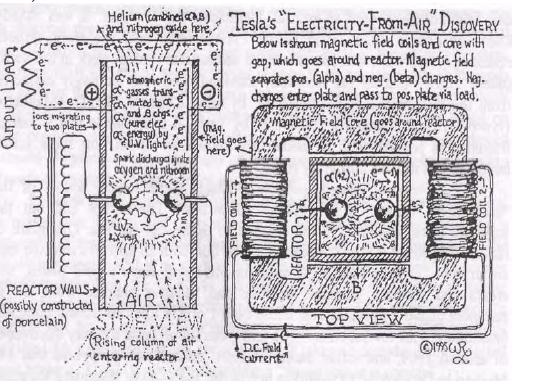 Helium (combined α & β)
and nitrogen oxide here
Tesla's "Electricity-From-Air" Discovery
Below is shown magnetic field coils and core with
gap, which goes around reactor. Magnetic field
separates pos. (alpha) and neg. (beta) charges. Neg.
charges enter plate and pass to pos. plate via load.
OUTPUT LOAD
e⁻
+
−
ions migrating
to two plates
atmospheric
gasses trans-
muted to α
and β chgs.
(pure elec.
energy) by
U.V. light.
Spark discharge ignite
oxygen and nitrogen
(mag.
field goes
here)
U.V.
REACTOR WALLS
(possibly constructed
of porcelain)
AIR
SIDE VIEW
(Rising column of air
entering reactor)
Magnetic Field Core (goes around reactor)
FIELD COIL 1
α (+2)
e⁻ (-1)
FIELD COIL 2
REACTOR
B
TOP VIEW
D.C. Field
current
©1995